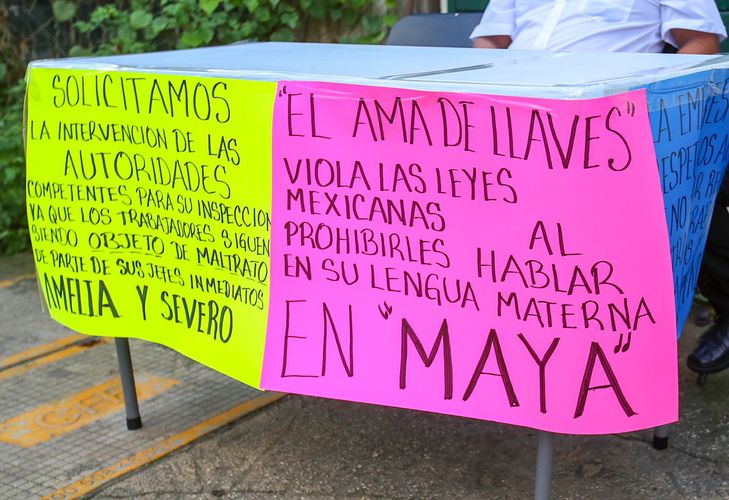 SOLICITAMOS
LA INTERVENCIÓN DE LAS
AUTORIDADES
COMPETENTES PARA SU INSPECCION
YA QUE LOS TRABAJADORES SIGUEN
SIENDO OBJETO DE MALTRATO
DE PARTE DE SUS JEFES INMEDIATOS
AMELIA Y SEVERO
"EL AMA DE LLAVES"
VIOLA LAS LEYES
MEXICANAS AL
PROHIBIRLES HABLAR
EN SU LENGUA MATERNA
EN "MAYA"
A EMPRES